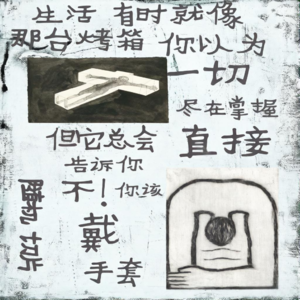 生活 有时就像
那台烤箱 你以为
一切
尽在掌握
但它总会 直接
告诉你
不! 你该
戴
手套
切片